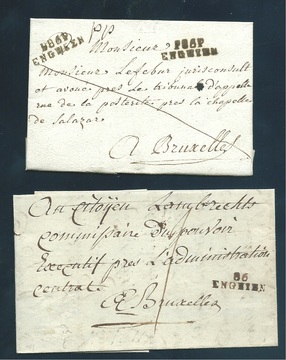 P86P
ENGHIEN
pp
P86P
ENGHIEN
Monsieur
Monsieur Lefebur jurisconsult
et avoue pres le tribunal d'appelle
rue de la posterité pres la chapelle
de Salazar
A Bruxelles
Au citoÿen Lambrechts
commissaire du pouvoir
Executif pres L'administration
central
86
ENGHIEN
A Bruxelles